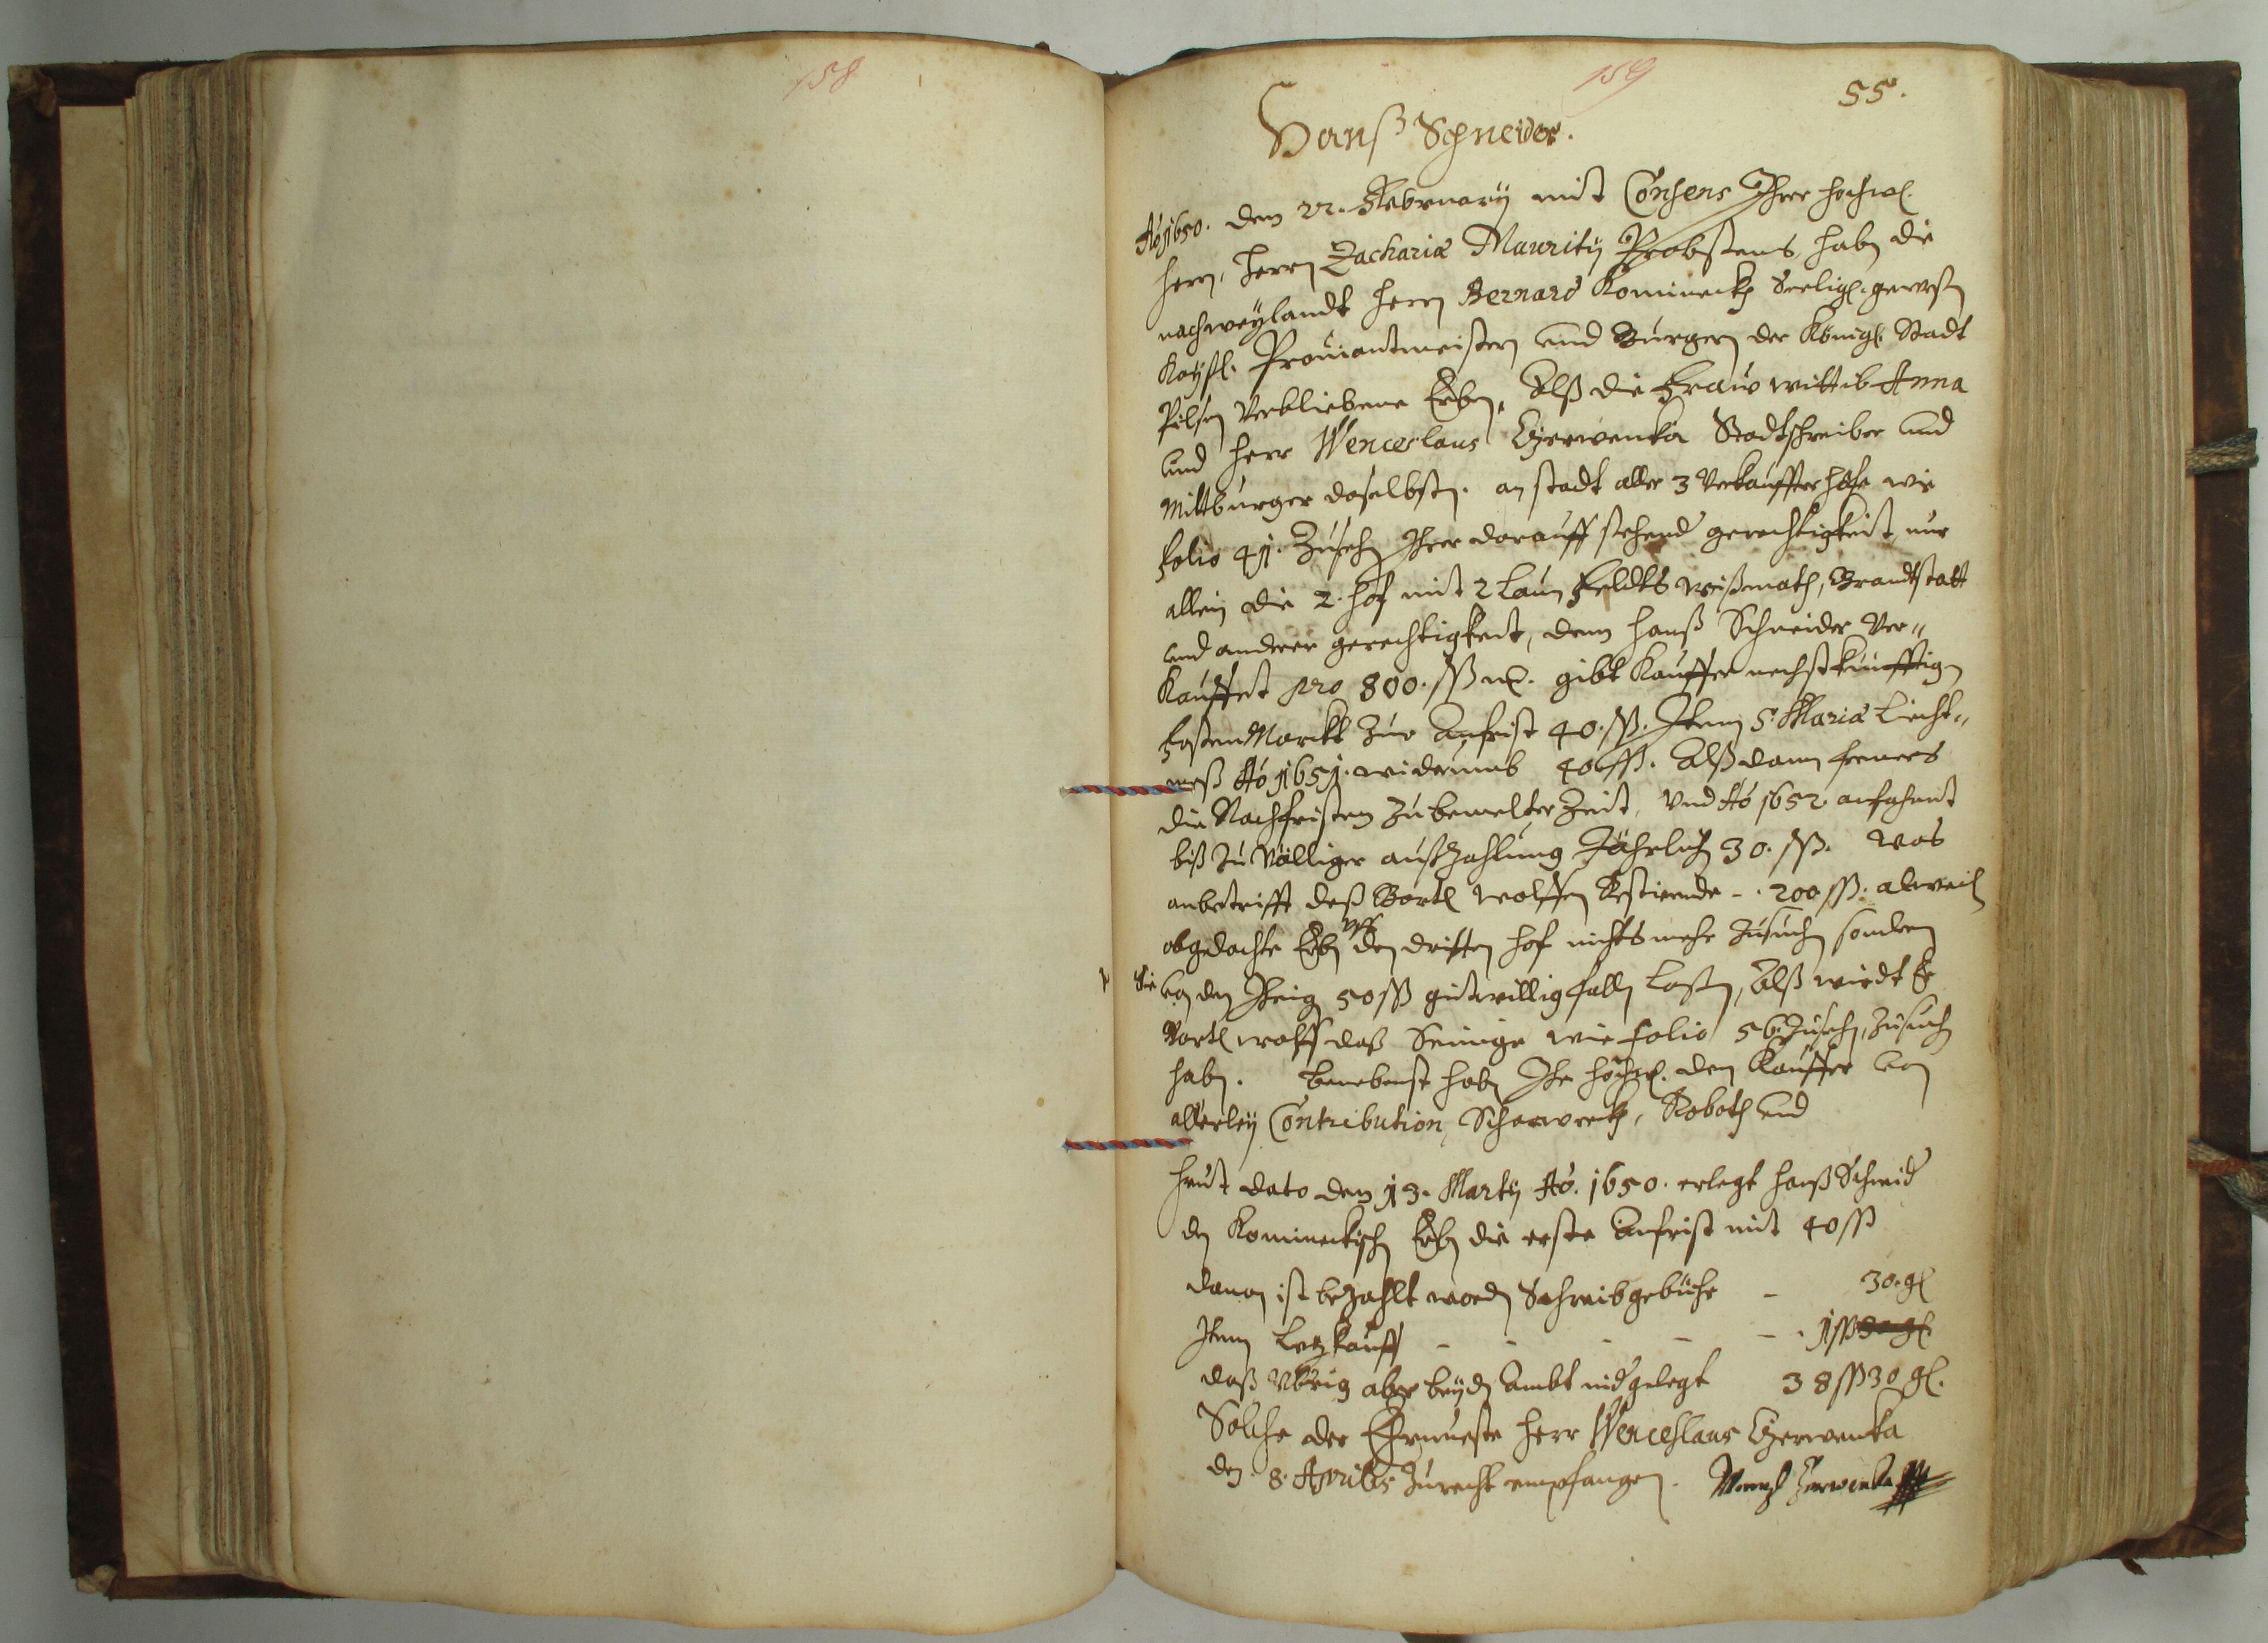 158
159
55.
Hanß Schneider.
Aō 1650. den 22. Februarÿ mit Consens Ihrer hochw.
Herrn, Herrn Zachariæ Mauritÿ Probstens, habn die
nach weÿlandt Herrn Bernard Komineckh Seelig. gewestn
Kaÿsl. Prouiantmeistern und Burgern der Königl. Stadt
Pilsn Verbliebene Erbn, Alß die Fraw wittib Anna
und Herr Wenceslaus Czerwenka Stadtschreiber und
Mittburger daselbstn. an stadt aller 3 Verkauffter höfe wie
folio 41. Zusehn Ihrer darauff stehend gerechtigkeit, nur
allein die 2. Höf mit 2 Laun Feldts wißmath, Brandtstatt
und anderer gerechtigkeit, dem Hanß Schneider Ver„
Kauffet pro 800. ßß m. gibt Kauffer nechst künfftign
fasten Marckt Zur Anfrist 40. ßß. Item S. Mariæ Liecht„
meß Aō 1651. widerumb 40 ßß. Alß dann ferners
die Nachfristen Zu bemelter Zeit, Und Aō 1652 anfahent
biß Zu Völliger auß Zahlung Jährlich 30. ßß. was
anbetrifft deß Bartl Wolffen Restirende - . 200 ßß. alweil
obgedachte Erbn vff den dritten hof nichts mehr Zusuchn sondern
die von den Ihrign 50 ßß gutwillig falln Lassn, Alß wirdt Er
Bartl Wolff daß Seinige wie folio 56. Zusehn, Zusuchn
habn. Benebenst habn Ihr hochw. den Kauffer von
allerleÿ Contribution, Scharwerckh, Roboth und
Heut dato den 13. Martÿ Aō. 1650. erlegt Hanß Schneid
den Kominekischn Erbn die erste Anfrist mit 40 ßß
dauon ist bezahlt wordn Schreibgebühr - 30. gl
Item Leykauff - - - - - . 1 ßß 30 gl
daß Vbrig aber beÿdn Ambt nidgelegt 38 ßß 30 gl.
Solche der Ehrnueste Herr Wenceslaus Czerwenka
den 8. Aprilis Zurecht empfangen. Wenzl Czerwenka